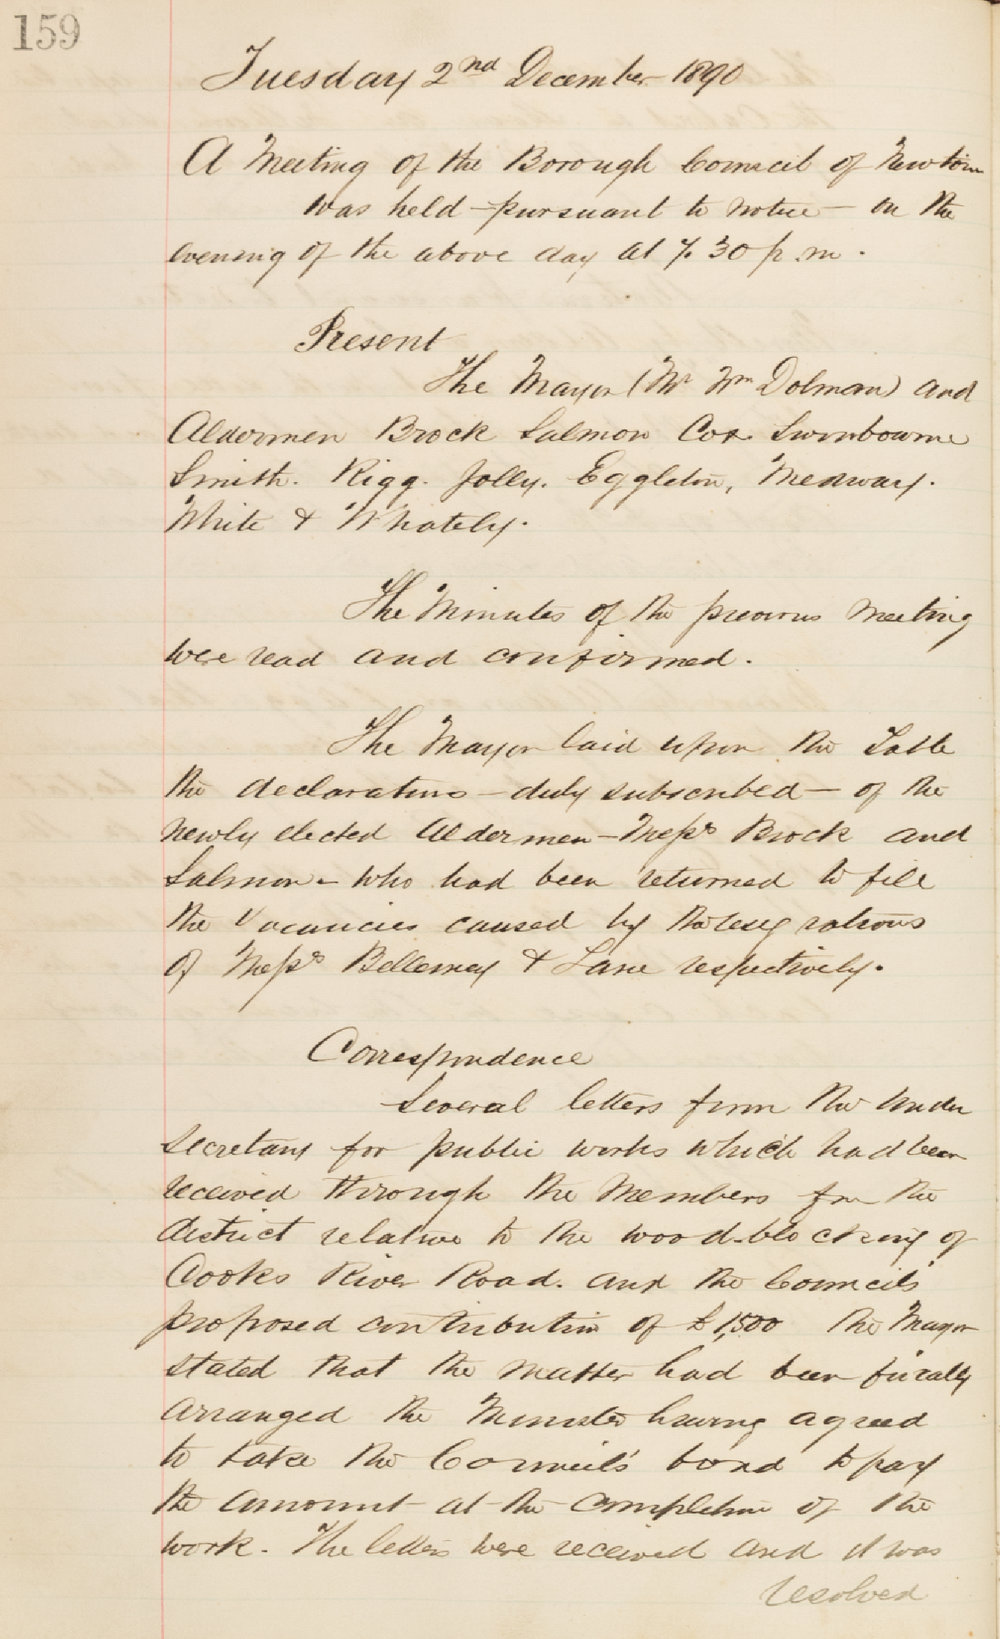 159
Tuesday 2nd December 1890
A Meeting of the Borough Council of Newtown
was held - pursuant to notice - on the
evening of the above day at 7.30 p.m.
Present
The Mayor (Mr Wm Dolman) and
Aldermen Brock Salmon Cox. Swinbourne
Smith. Rigg. Jolly. Eggleton, Medway.
White & Whately.
The Minutes of the previous Meeting
were read and confirmed.
The Mayor laid upon the Table
the declarations - duly subscribed - of the
newly elected Aldermen - Messrs Brock and
Salmon - who had been returned to fill
the Vacancies caused by the resignations
of Messrs Bellemey & Lane respectively.
Correspondence
Several letters from the Under
Secretary for public works which had been
received through the Members for the
district relative to the wood-blocking of
Cooks River Road. and the Council's
proposed contribution of £1,500 The Mayor
stated that the matter had been finally
arranged the Minister having agreed
to take the Council's bond to pay
the amount at the completion of the
work. The letters were received and it was
resolved